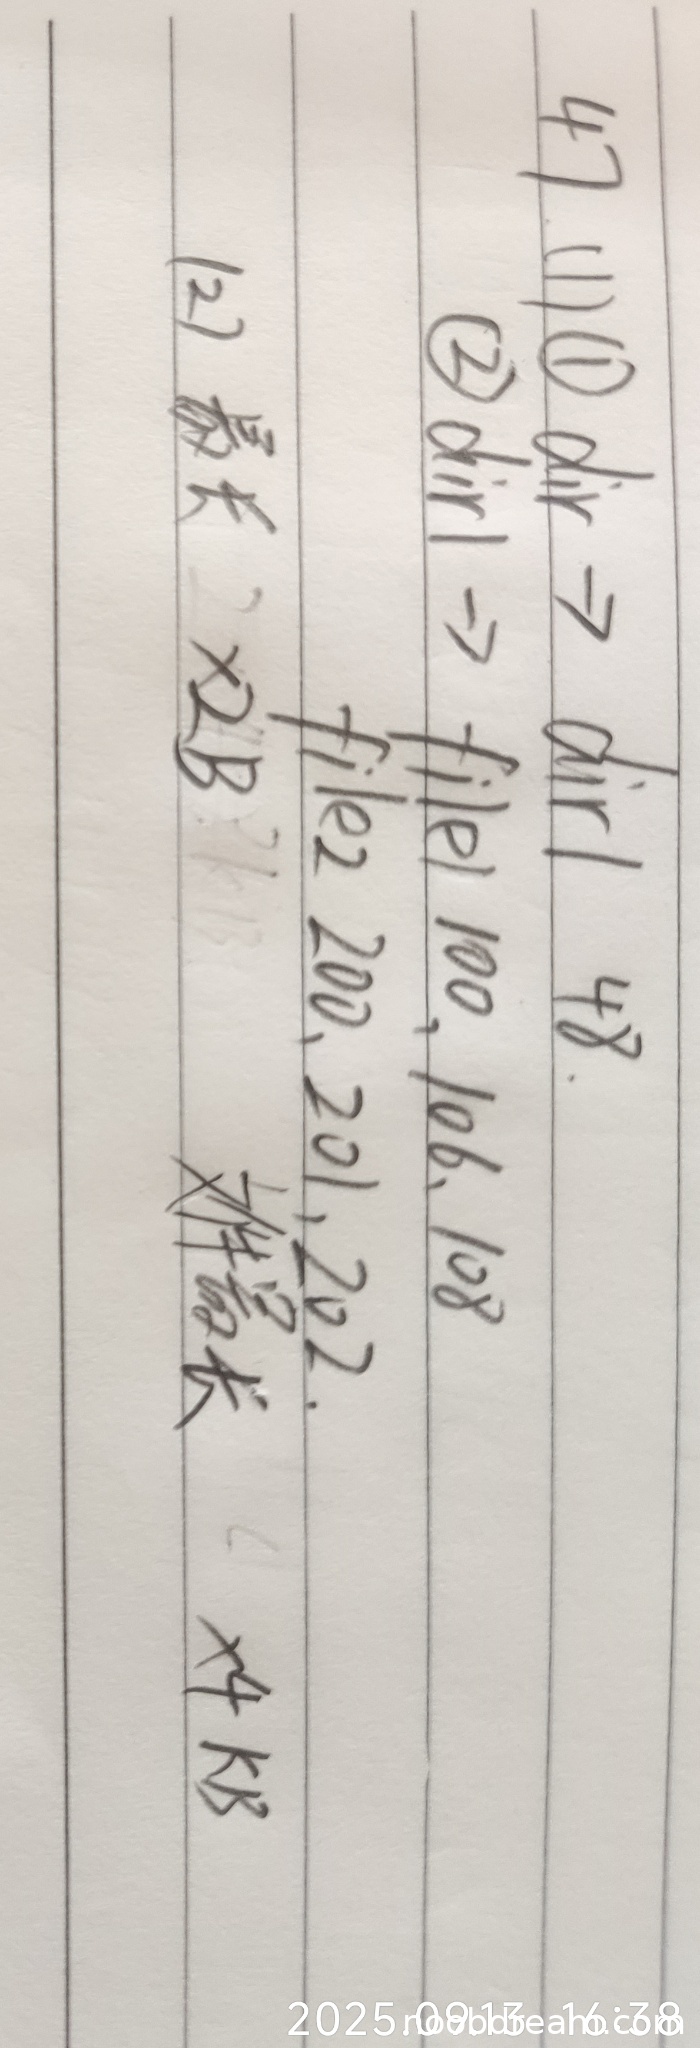 47.(1)① dir → dir1 48.
② dir1 → file1 100, 106, 108
file2 200, 201, 202.
(2) 最长 x2B 文件最长 x4KB
2025.09.13 16:38
noobdream.com